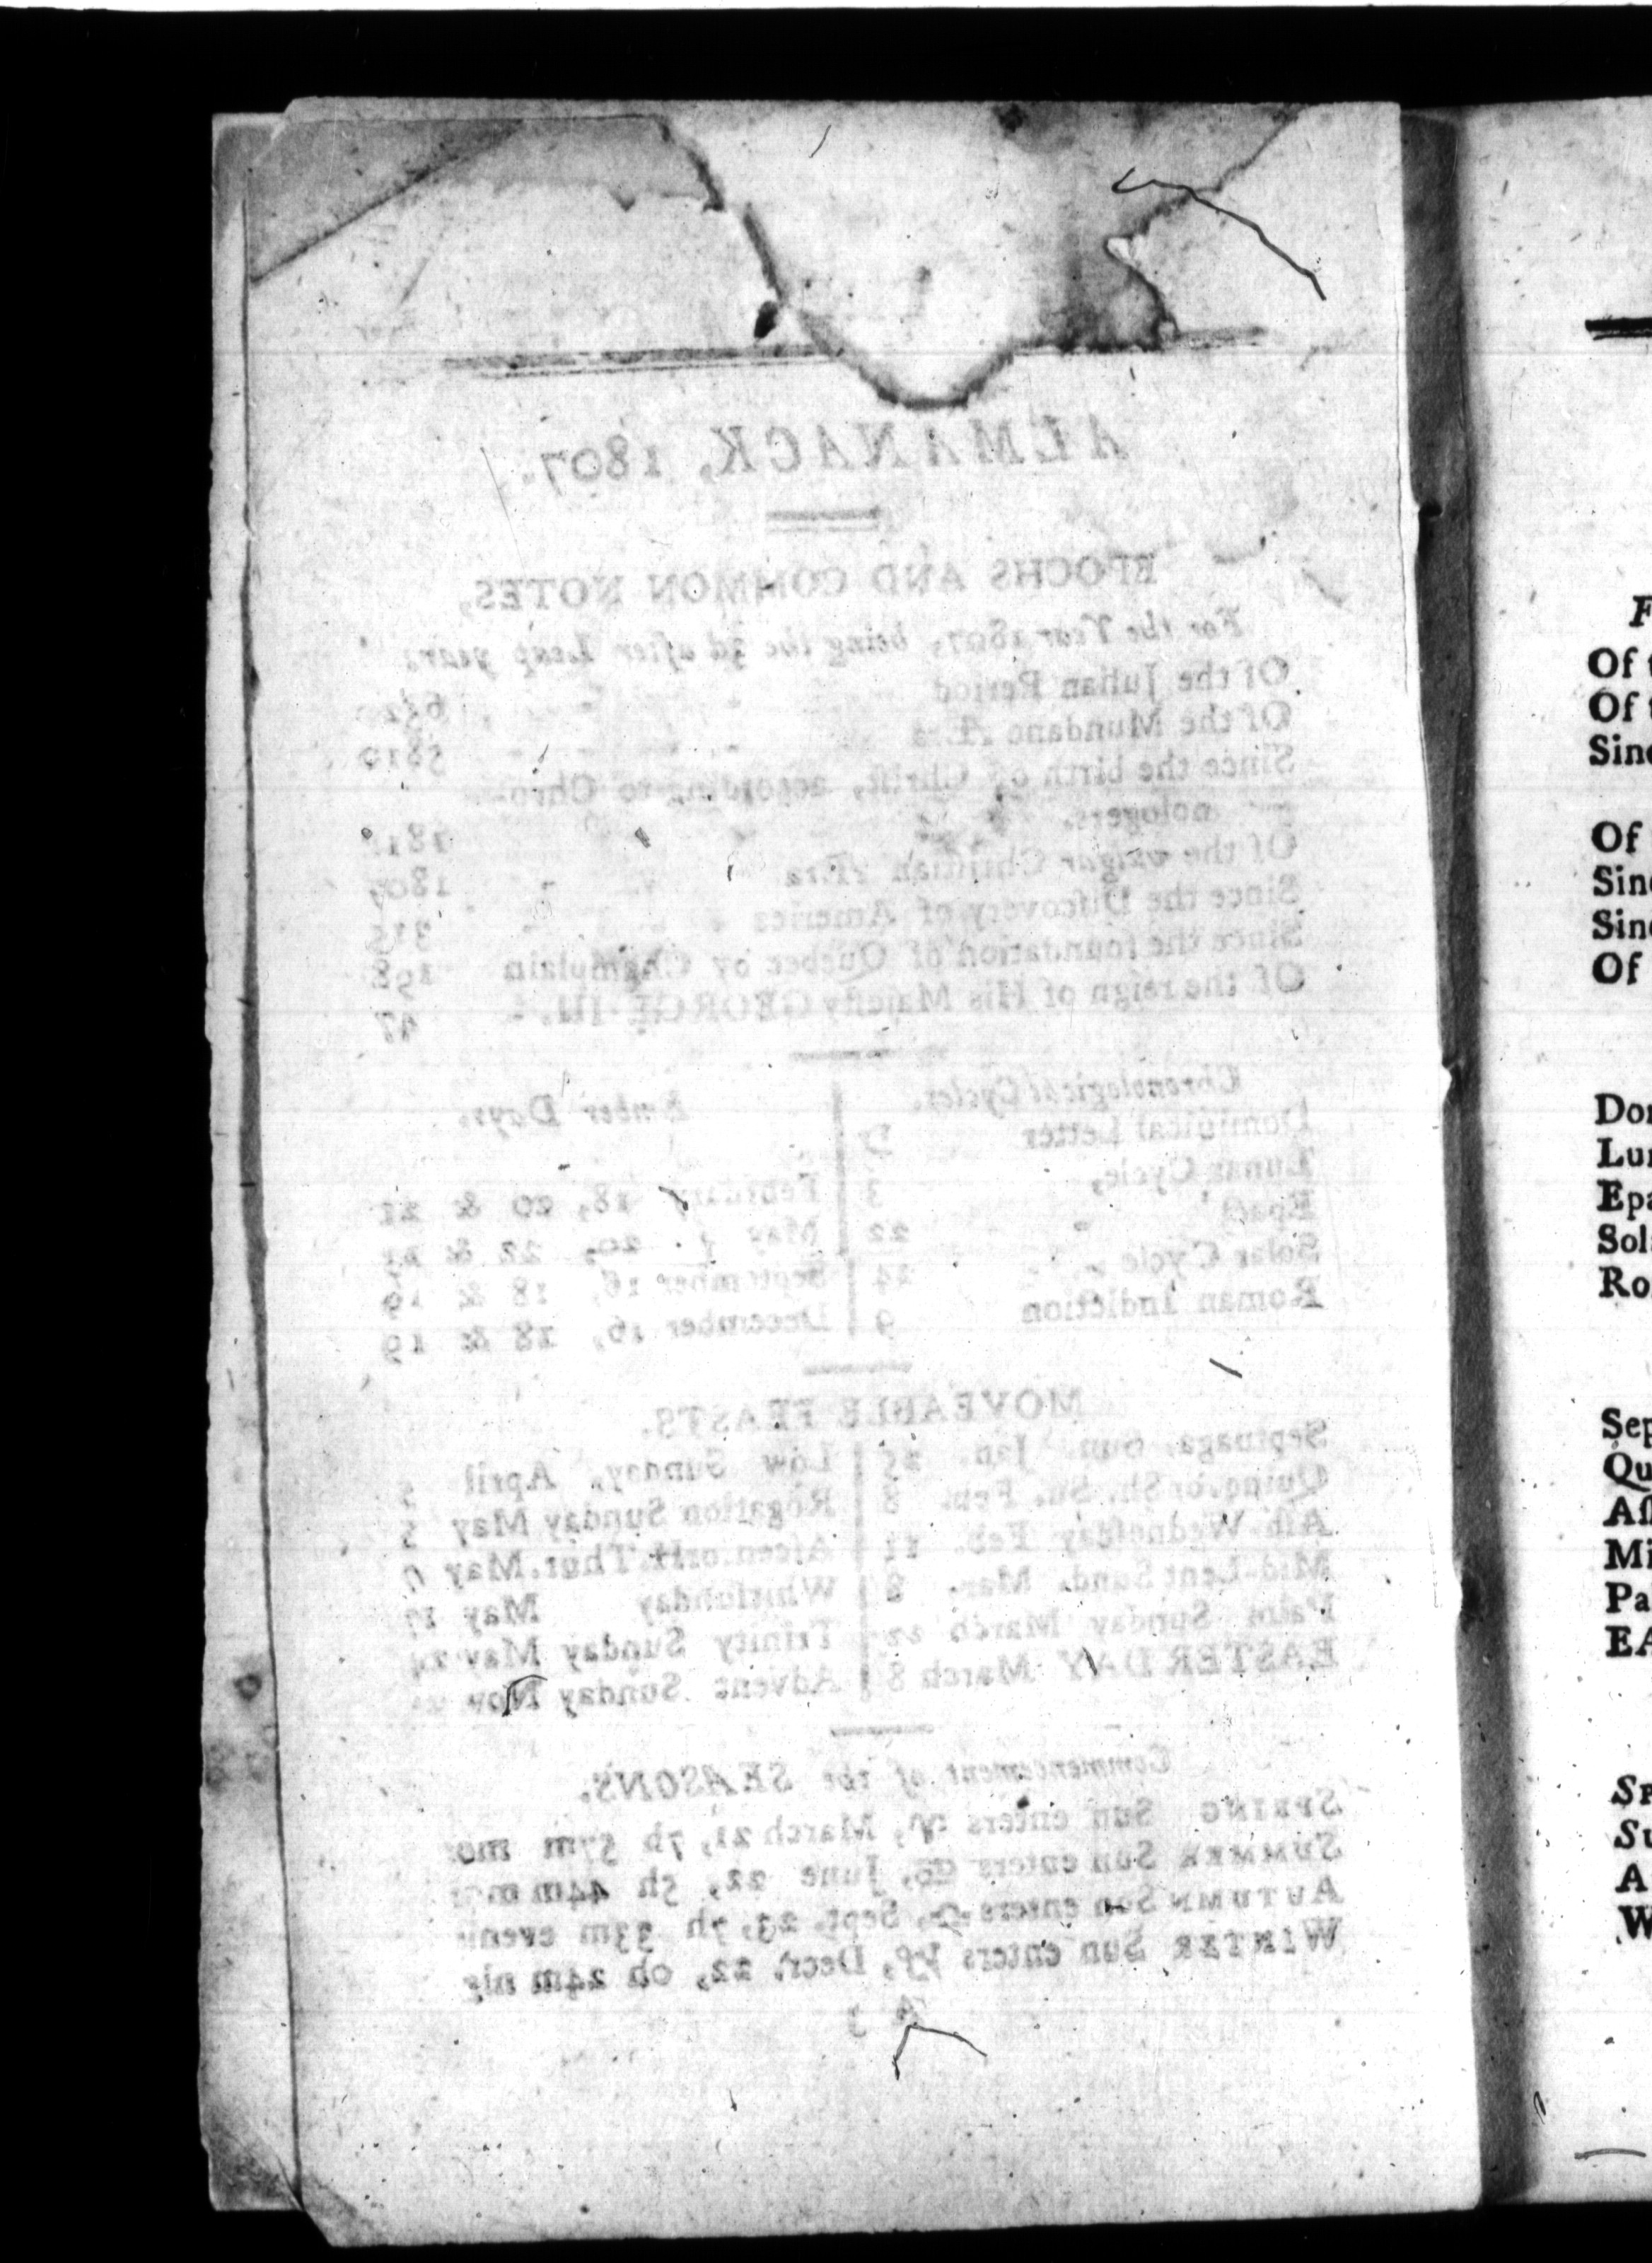 ALMANACK, 1807.
EPOCHS AND COMMON NOTES,
For the Year 1807, being the 3d after Leap year.
Of the Julian Period 6520
Of the Mundane Æra 5810
Since the birth of Christ, according to Chro-
nologers, 1811
Of the vulgar Christian Æra 1807
Since the Discovery of America 315
Since the foundation of Quebec by Champlain 198
Of the reign of His Majesty GEORGE III. 47
Chronological Cycles.
Dominical Letter D
Lunar Cycle, 3
Epact 22
Solar Cycle 24
Roman Indiction 9
Ember Days.
February 18, 20 & 21
May 20, 22 & 23
September 16, 18 & 19
December 16, 18 & 19
MOVEABLE FEASTS.
Septuaga. Sun. Jan. 25
Quinq. or Sh. Su. Feb. 8
Ash-Wednesday Feb. 11
Mid-Lent Sund. Mar. 8
Palm Sunday March 22
EASTER DAY March
Low Sunday, April 5
Rogation Sunday May
Ascen. or H. Thur. May
Whitsunday May 17
Trinity Sunday May 24
Advent Sunday Nov
Commencement of the SEASONS.
SPRING Sun enters ♈, March 21, 7h 57m mor
SUMMER Sun enters ♋, June 22, 5h 44m mor
AUTUMN Sun enters ♎, Sept. 23, 7h 33m eveni
WINTER Sun enters ♑, Decr. 22, 0h 24m nig
A 3
F
Of t
Of t
Sinc
Of
Sinc
Sinc
Of
Dom
Lun
Epa
Sol
Ro
Sep
Qu
Aſ
Mi
Pa
EA
SP
Su
A
W